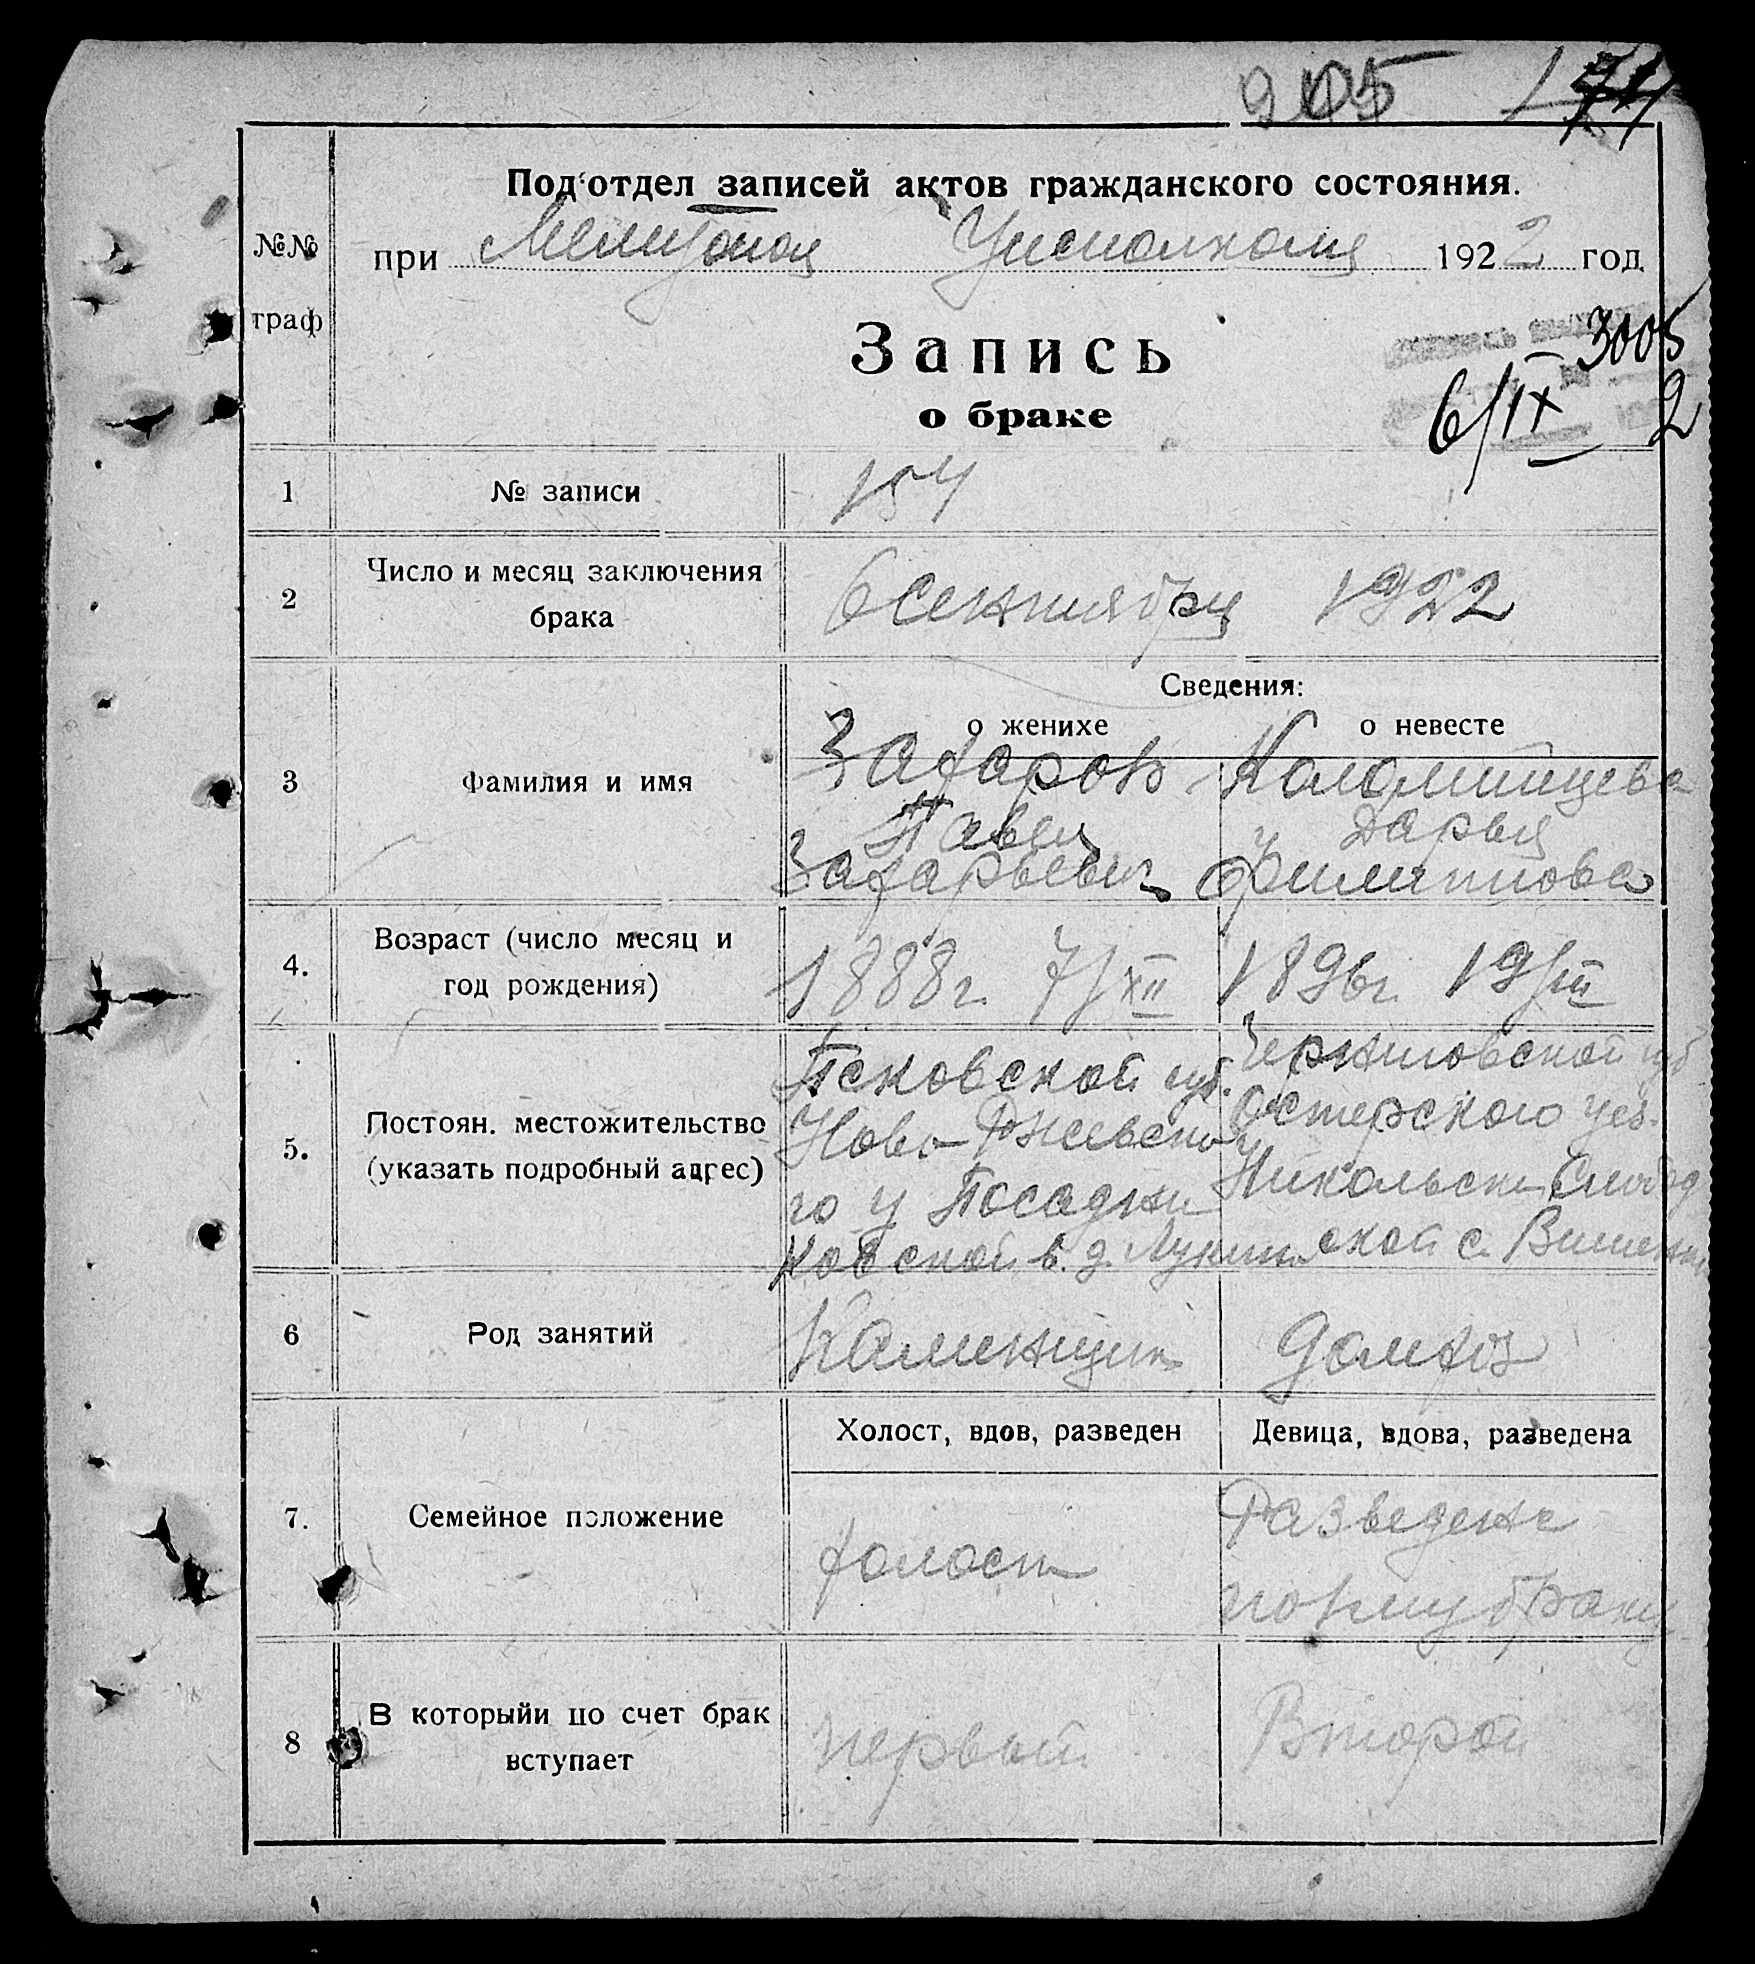 905
Подотдел записей актов гражданского состояния.
№№ граф
при Мелитопол Уисполкома 1922 год
Запись
о браке
3005
6/IX 2
1 № записи 154
2 Число и месяц заключения брака 6 сентября 1922
Сведения:
о женихе о невесте
3 Фамилия и имя
Захаров Коломийцева
Павел Дарья
Захарьевич Филиппова
4. Возраст (число месяц и год рождения)
1888г. 7/XII 1896г. 19/III
5. Постоян. местожительство (указать подробный адрес)
Псковской губ. Черниговской губ
Ново-Ржевско Остерского уез.
го у Посадни Никольск Слобод
ковской в. д. ской с. Вишенки
6 Род занятий Каменщик домхоз
Холост, вдов, разведен Девица, вдова, разведена
7. Семейное положение
холост Разведена
браку
8 В которыйи по счет брак вступает
первый Второй